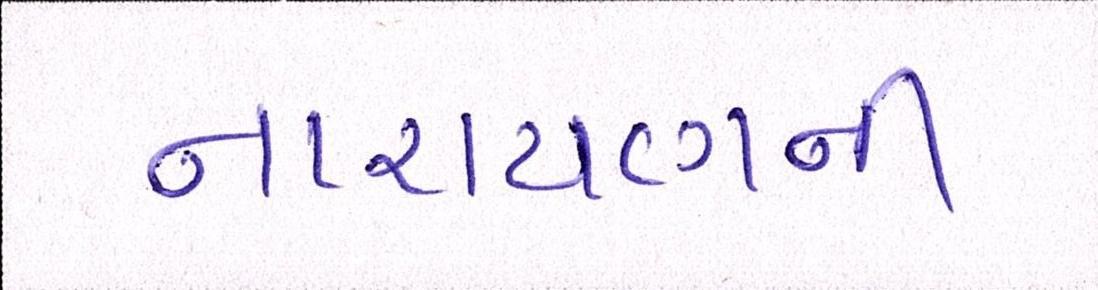 નારાયણની